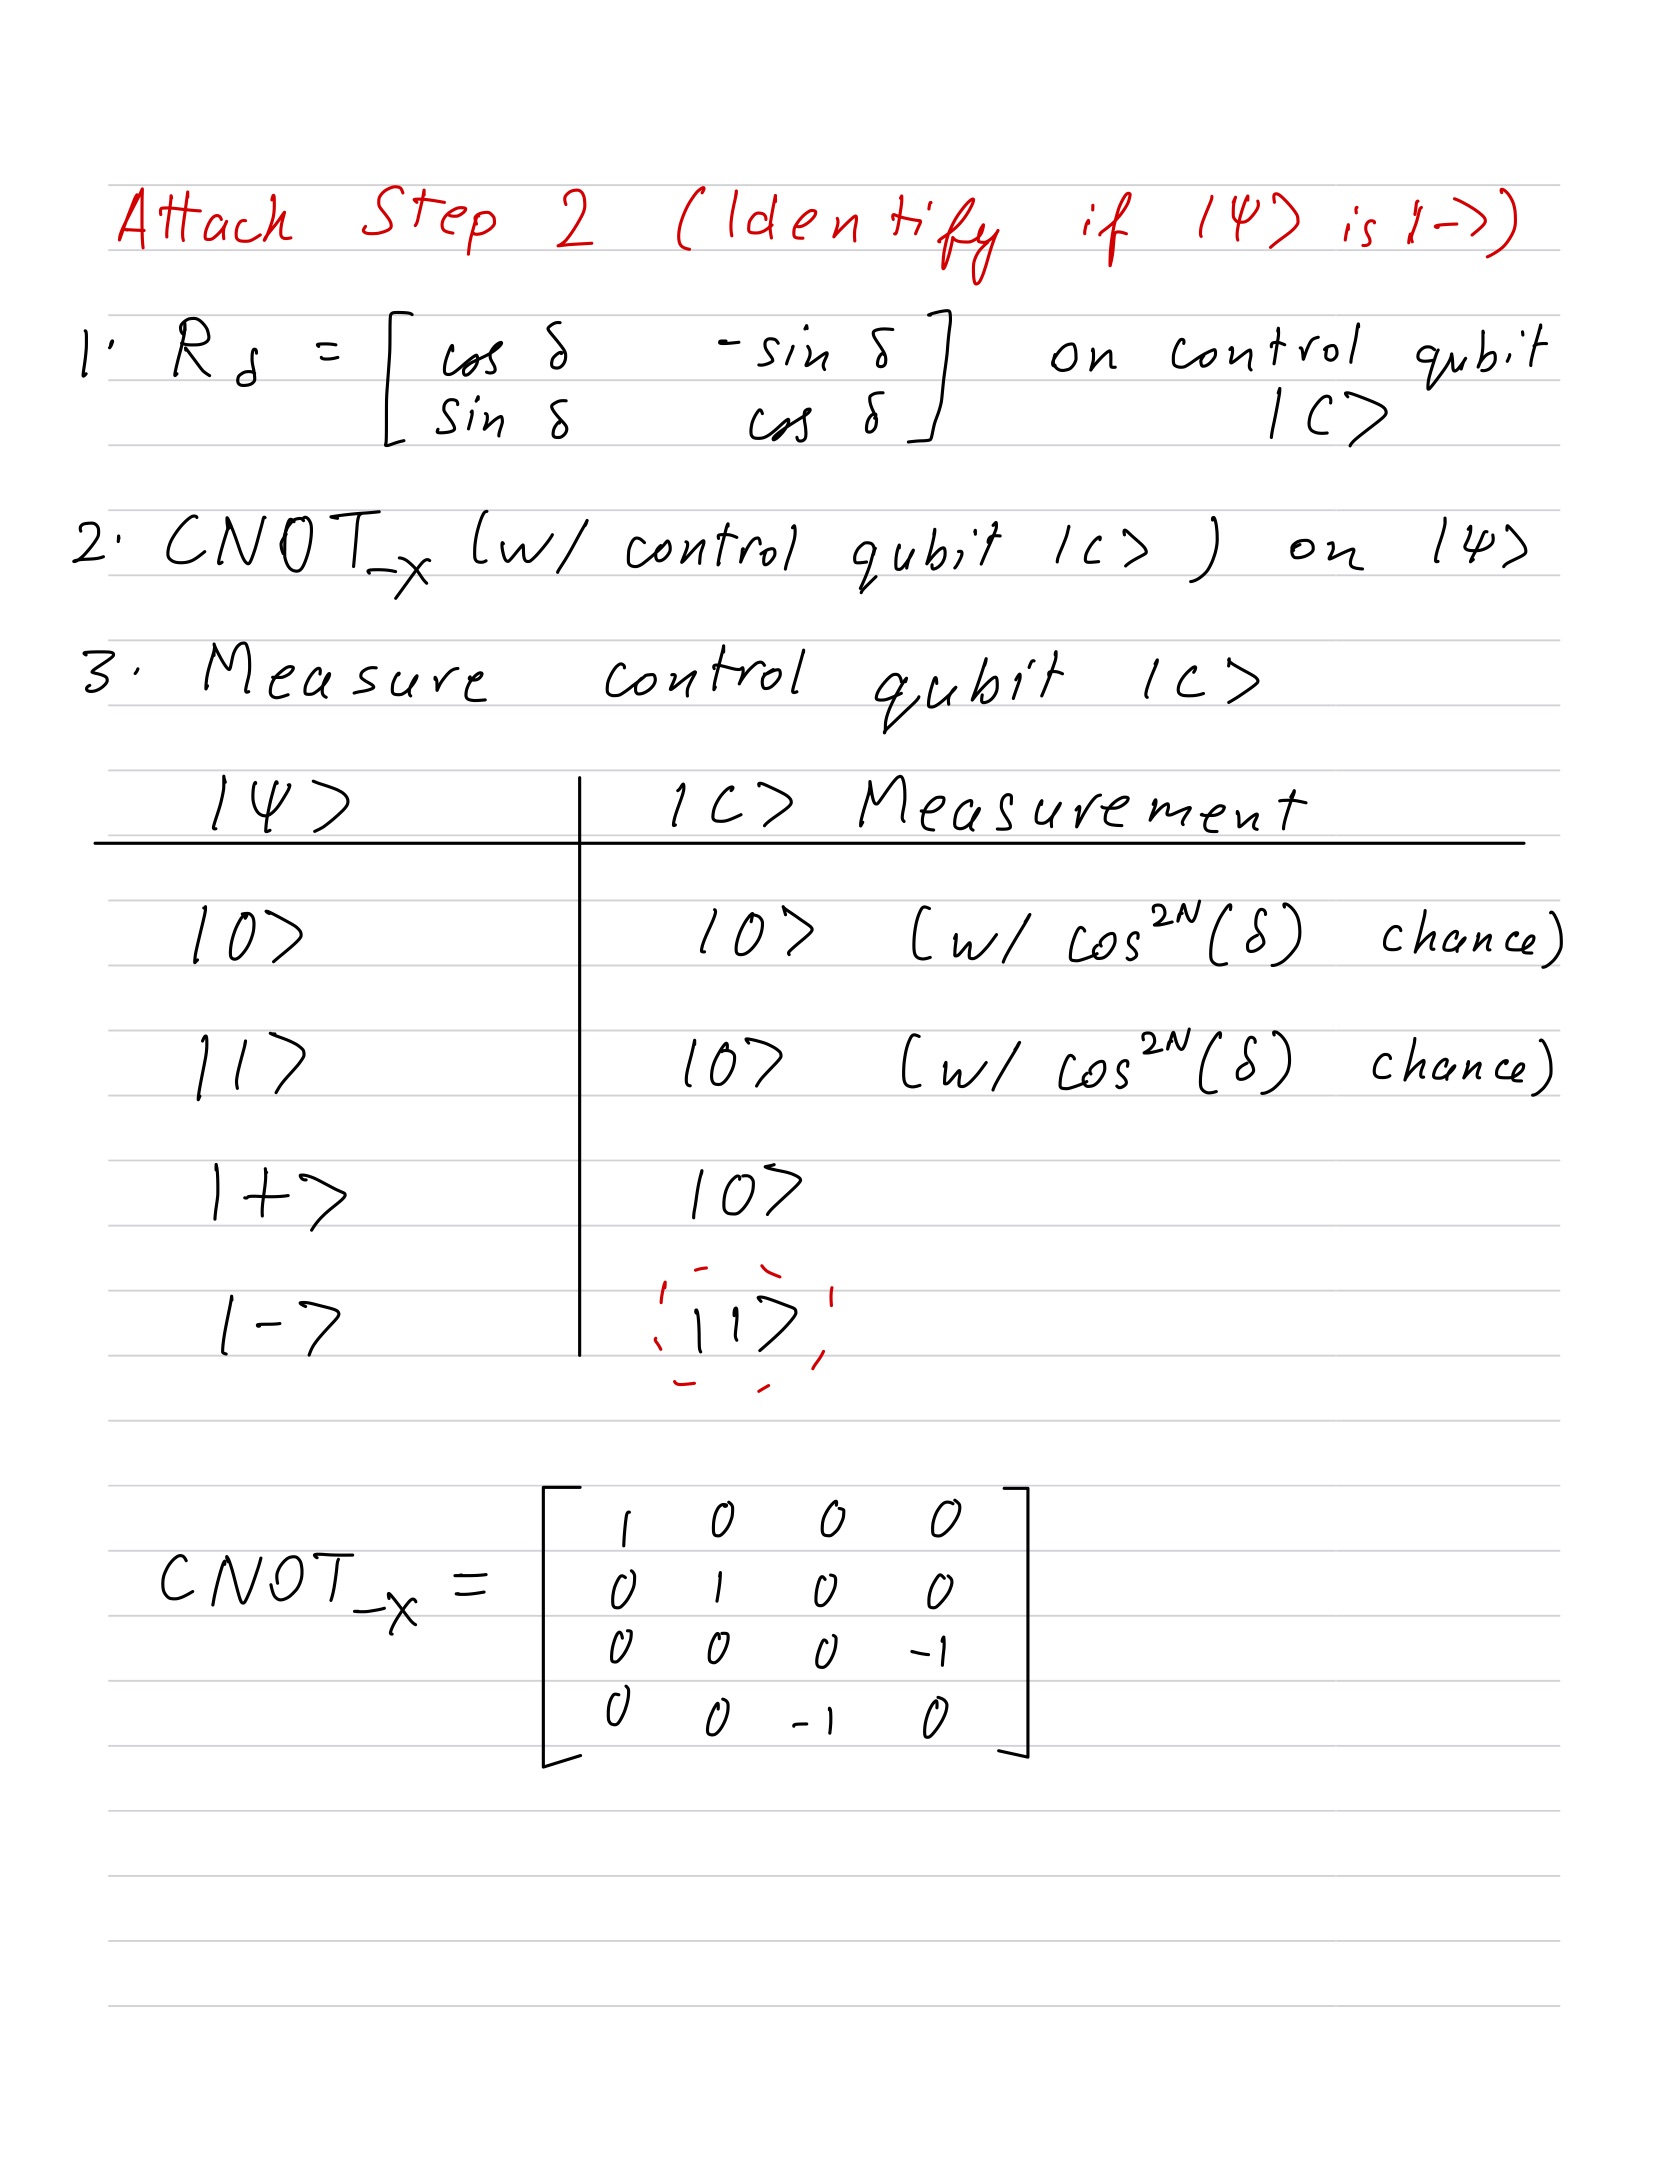 Attack Step 2 (Identify if |ψ> is |->)
1. R_δ = [cos δ  -sin δ] on control qubit
[sin δ  cos δ] |c>
2. CNOT_-X (w/ control qubit |c>) on |ψ>
3. Measure control qubit |c>
|ψ> | |c> Measurement
|0> | |0> (w/ cos^2N(δ) chance)
|1> | |0> (w/ cos^2N(δ) chance)
|+> | |0>
|-> | |1>
CNOT_-X = [1 0 0 0]
[0 1 0 0]
[0 0 0 -1]
[0 0 -1 0]